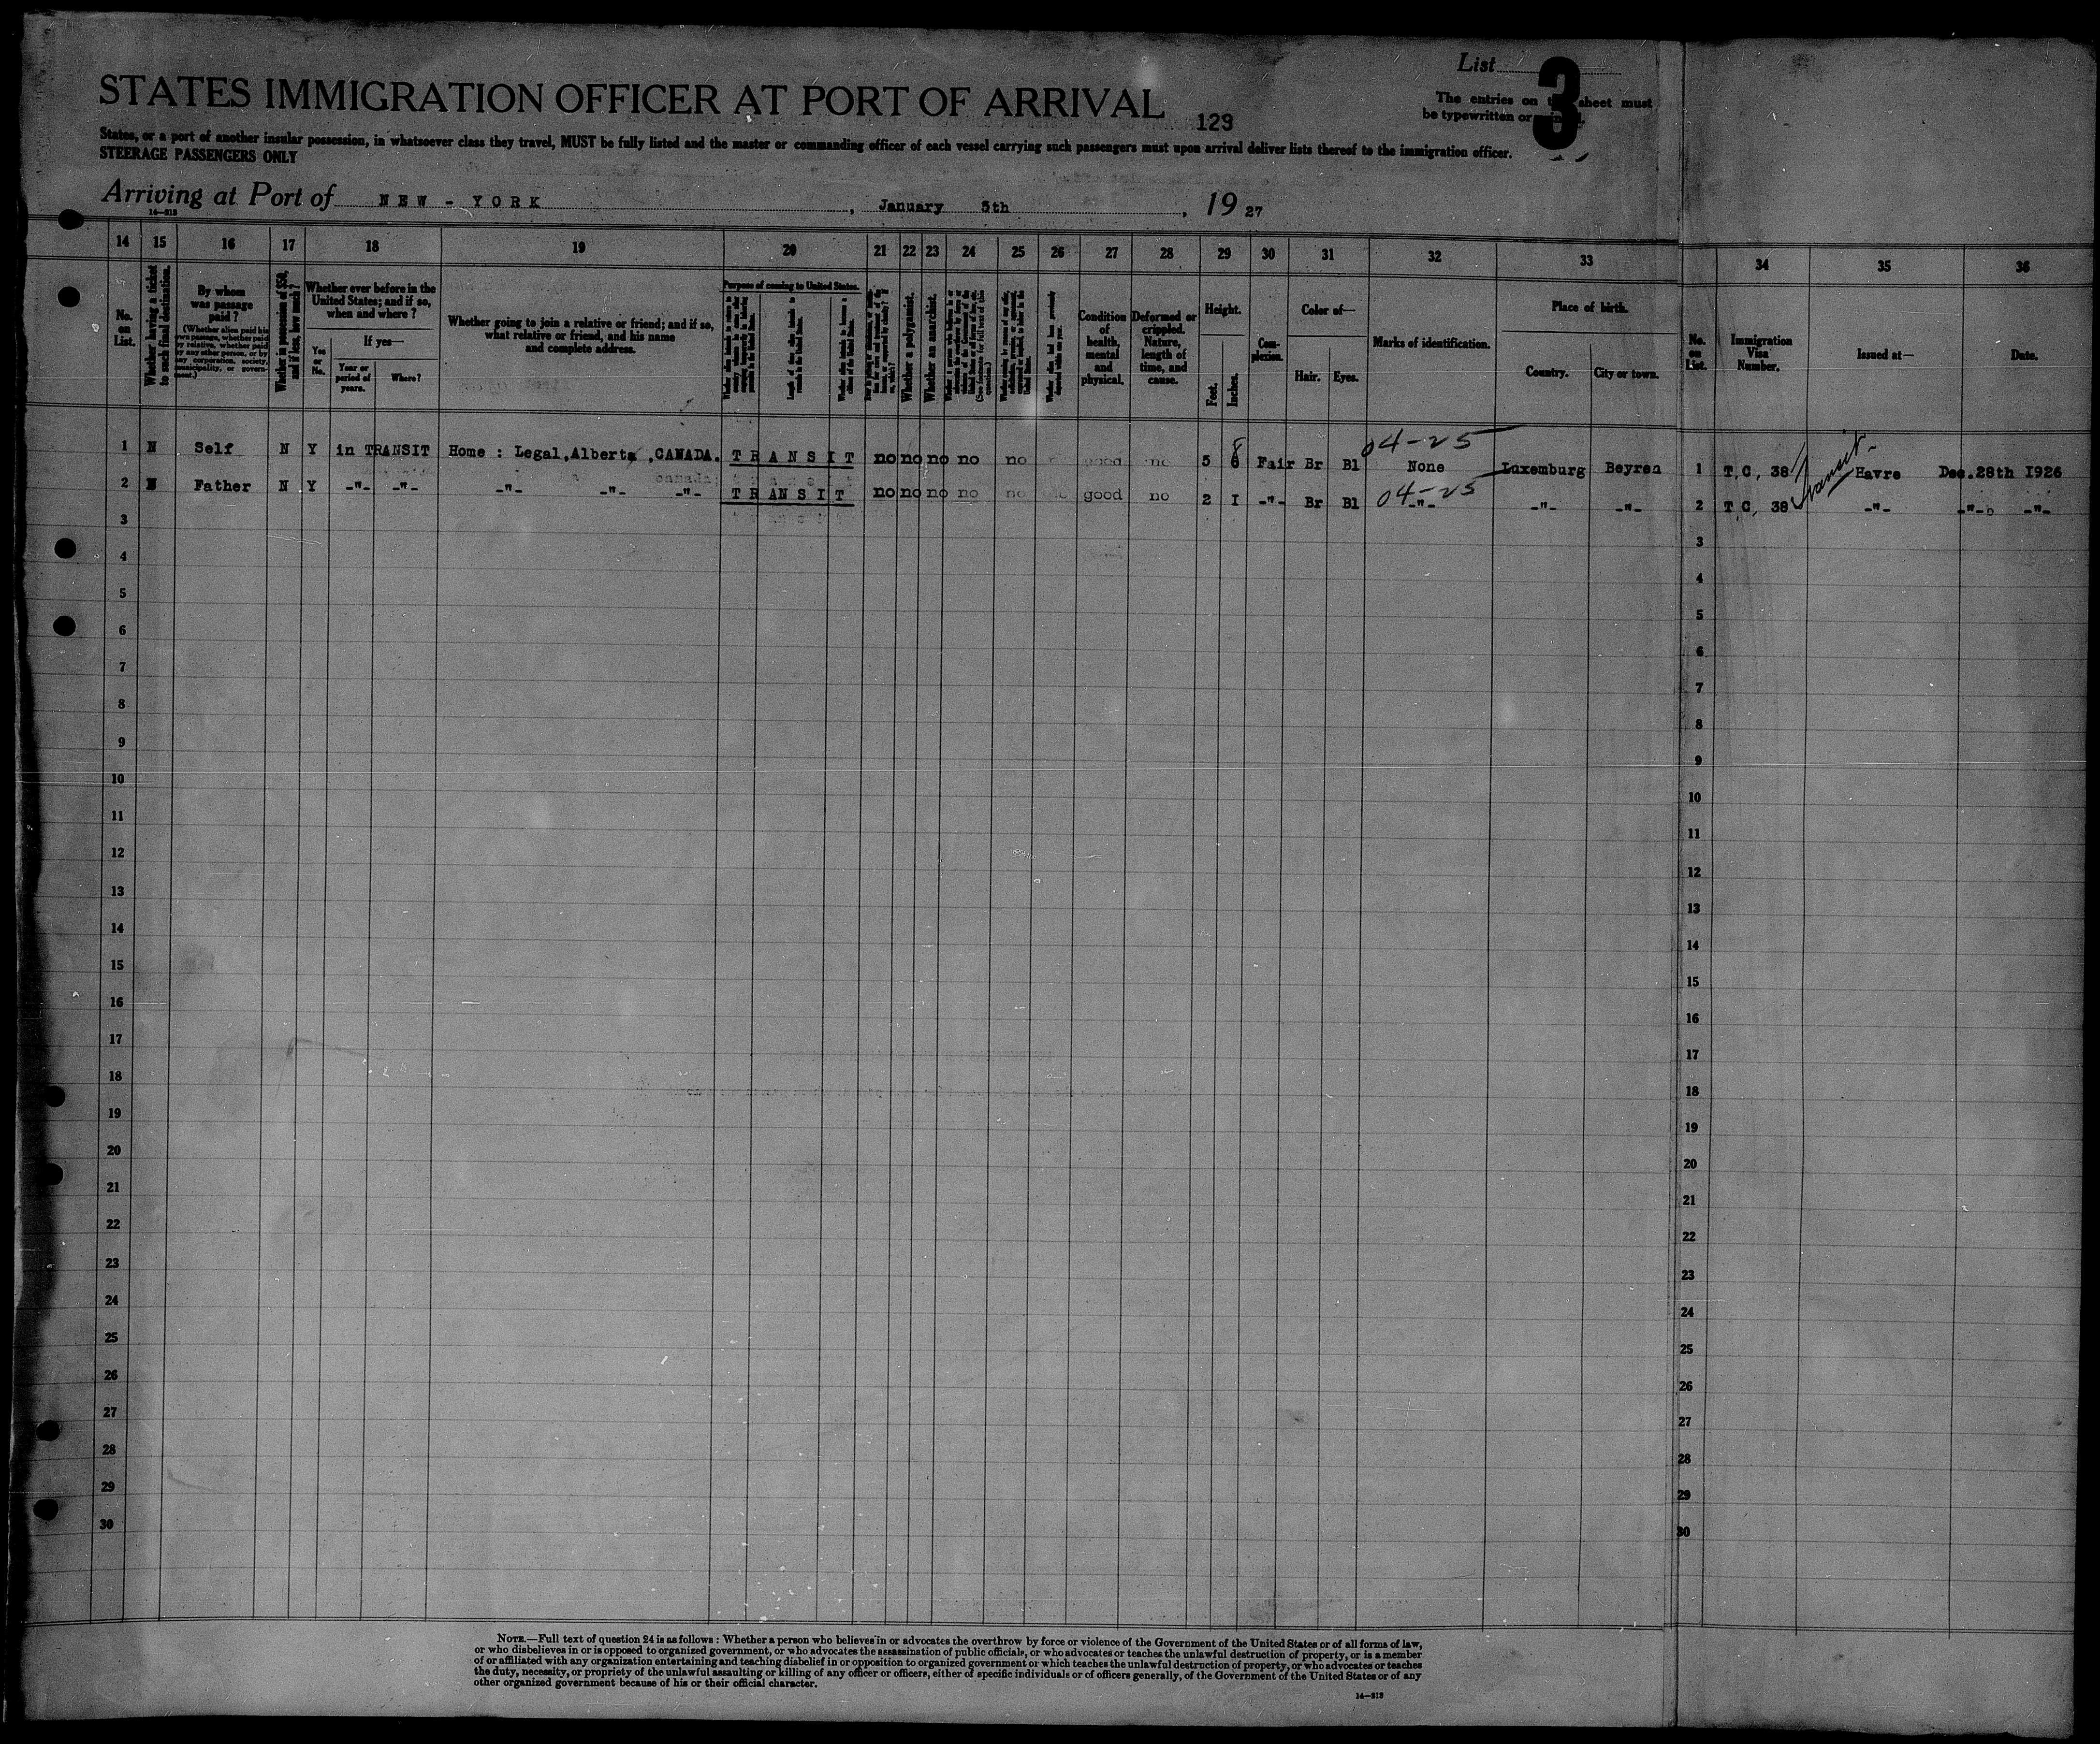 List 3
The entries on sheet must
be typewritten or
STATES IMMIGRATION OFFICER AT PORT OF ARRIVAL
129
States, or a port of another insular possession, in whatsoever class they travel, MUST be fully listed and the master or commanding officer of each vessel carrying such passengers must upon arrival deliver lists thereof to the immigration officer.
STEERAGE PASSENGERS ONLY
Arriving at Port of NEW - YORK , January 5th , 19 27
14 15 16 17 18 19 20 21 22 23 24 25 26 27 28 29 30 31 32 33 34 35 36
No. on List.
Whether having a ticket to such final destination.
By whom was passage paid?
(Whether alien paid his own passage, whether paid by relative, whether paid by any other person, or by any corporation, society, municipality, or government.)
Whether in possession of $50, and if less, how much?
Whether ever before in the United States; and if so, when and where?
Yes or No.
If yes—
Year or period of years.
Where?
Whether going to join a relative or friend; and if so, what relative or friend, and his name and complete address.
Purpose of coming to United States.
Whether a polygamist.
Whether an anarchist.
Condition of health, mental and physical.
Deformed or crippled. Nature, length of time, and cause.
Height.
Feet.
Inches.
Complexion.
Color of—
Hair.
Eyes.
Marks of identification.
Place of birth.
Country.
City or town.
No. on List.
Immigration Visa Number.
Issued at—
Date.
04-25
1 N Self N Y in TRANSIT Home : Legal,Alberta ,CANADA. TRANSIT no no no no no good no 5 8 Fair Br Bl None Luxemburg Beyren 1 T.C. 38 Transit Havre Dec.28th I926
04-25
2 N Father N Y -"- -"- -"- -"- -"- TRANSIT no no no no no good no 2 I -"- Br Bl -"- -"- -"- 2 T.C. 38 -"- -"- -"-
3 3
4 4
5 5
6 6
7 7
8 8
9 9
10 10
11 11
12 12
13 13
14 14
15 15
16 16
17 17
18 18
19 19
20 20
21 21
22 22
23 23
24 24
25 25
26 26
27 27
28 28
29 29
30 30
NOTE.—Full text of question 24 is as follows: Whether a person who believes in or advocates the overthrow by force or violence of the Government of the United States or of all forms of law,
or who disbelieves in or is opposed to organized government, or who advocates the assassination of public officials, or who advocates or teaches the unlawful destruction of property, or is a member
of or affiliated with any organization entertaining and teaching disbelief in or opposition to organized government or which teaches the unlawful destruction of property, or who advocates or teaches
the duty, necessity, or propriety of the unlawful assaulting or killing of any officer or officers, either of specific individuals or of officers generally, of the Government of the United States or of any
other organized government because of his or their official character.
14—313